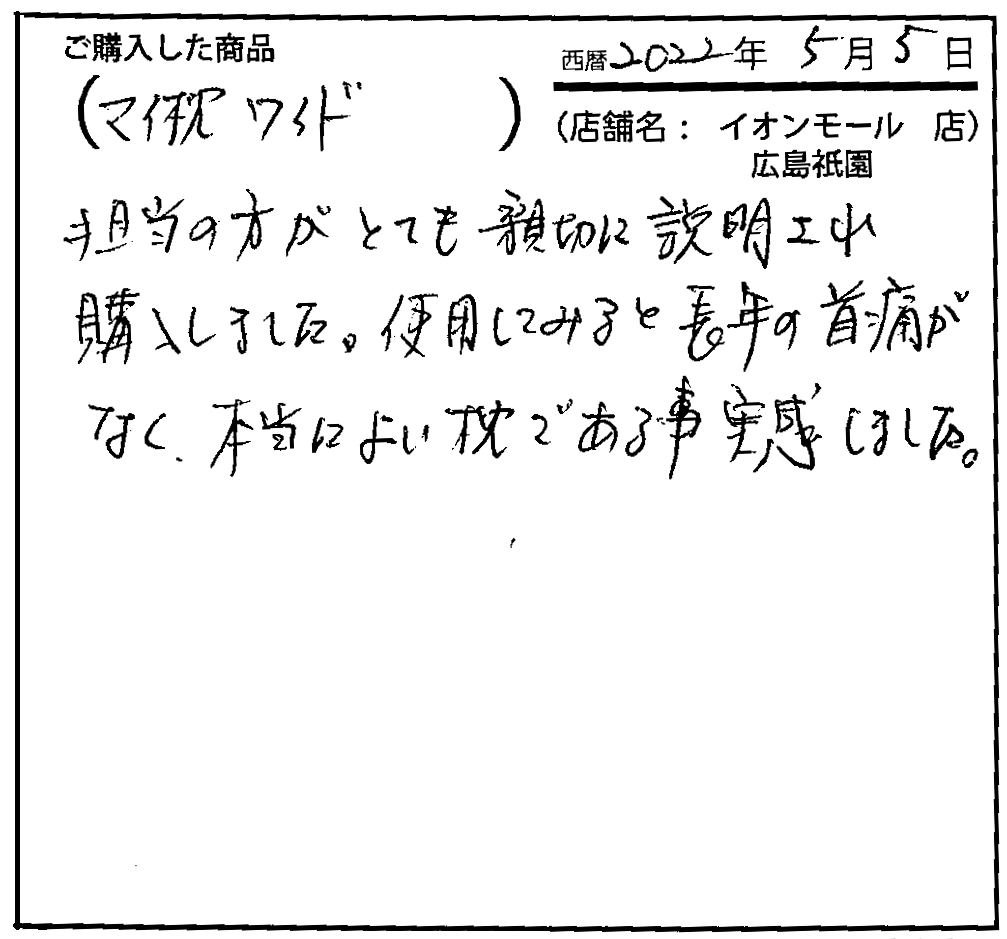 ご購入した商品
西暦2022年 5月5日
(マイ枕 ワイド)
(店舗名： イオンモール 店)
広島祇園
担当の方がとても親切に説明され
購入しました。使用してみると長年の首痛が
なく、本当によい枕である事実感しました。